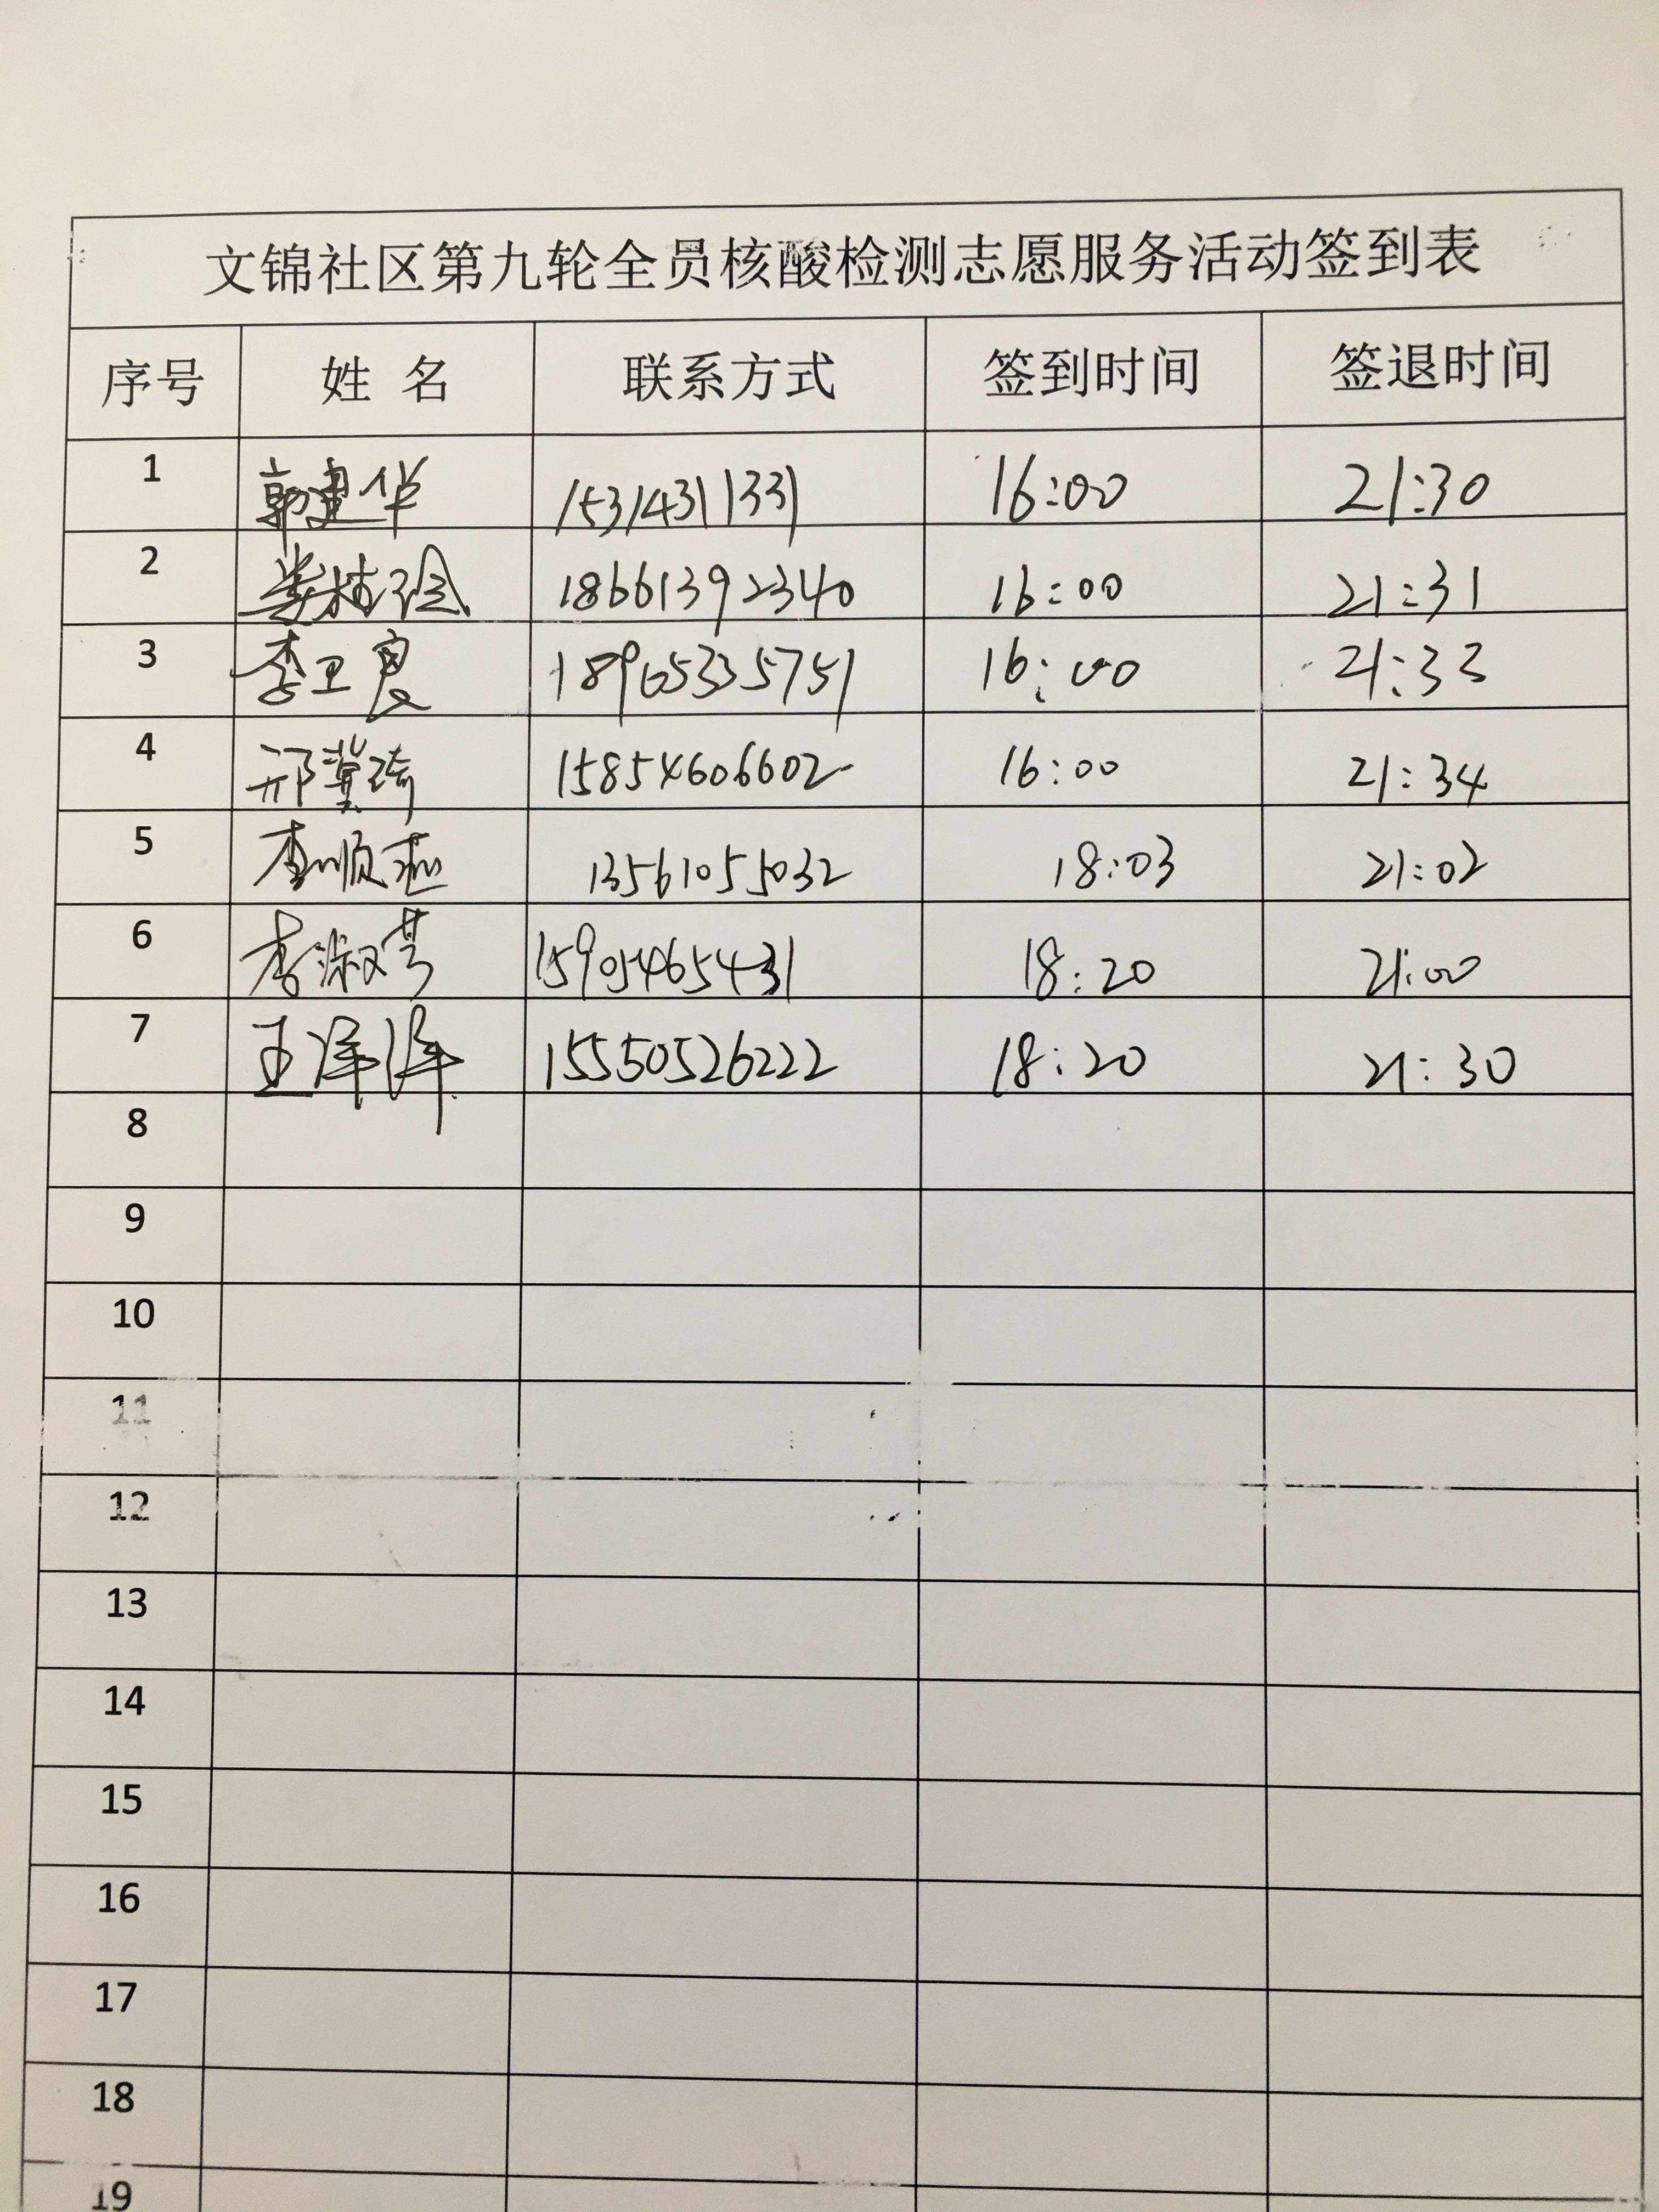 文锦社区第九轮全员核酸检测志愿服务活动签到表
序号 姓 名 联系方式 签到时间 签退时间
1 郭建华 15314311331 16:00 21:30
2 18661392340 16:00 21:31
3 李卫良 18965335751 16:00 21:33
4 邢冀琦 15854606602 16:00 21:34
5 李顺燕 13561055032 18:03 21:02
6 李淑芳 15905465431 18:20 21:00
7 王洋洋 15550526222 18:20 21:30
8
9
10
11
12
13
14
15
16
17
18
19